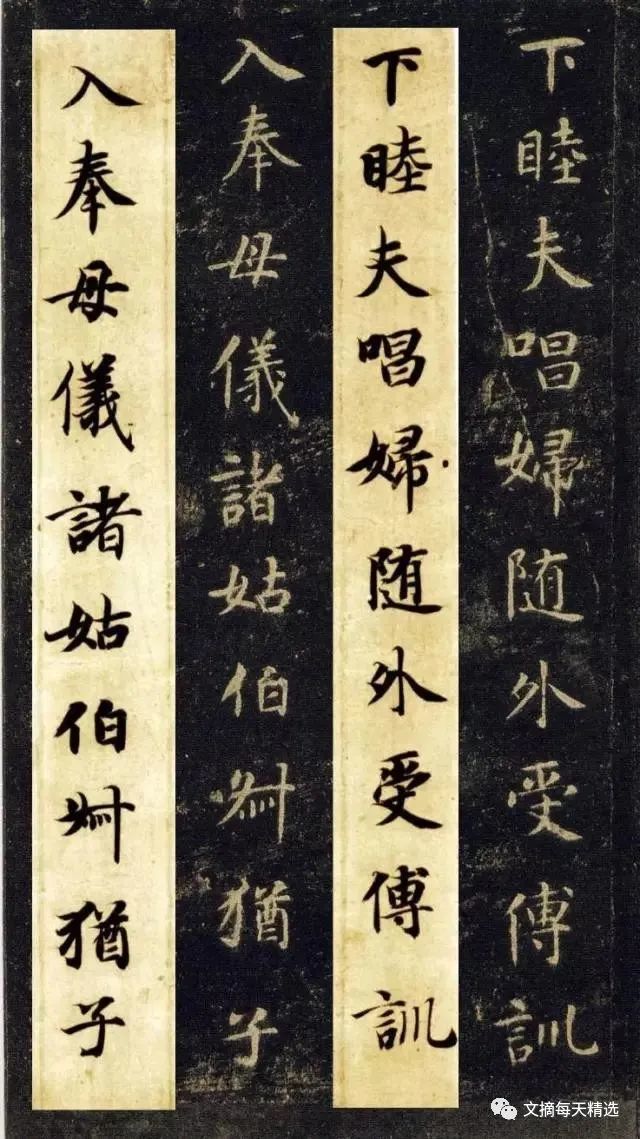 下睦夫唱婦随外受傅訓
下睦夫唱婦随外受傅訓
入奉母儀諸姑伯叔猶子
入奉母儀諸姑伯叔猶子
文摘每天精选